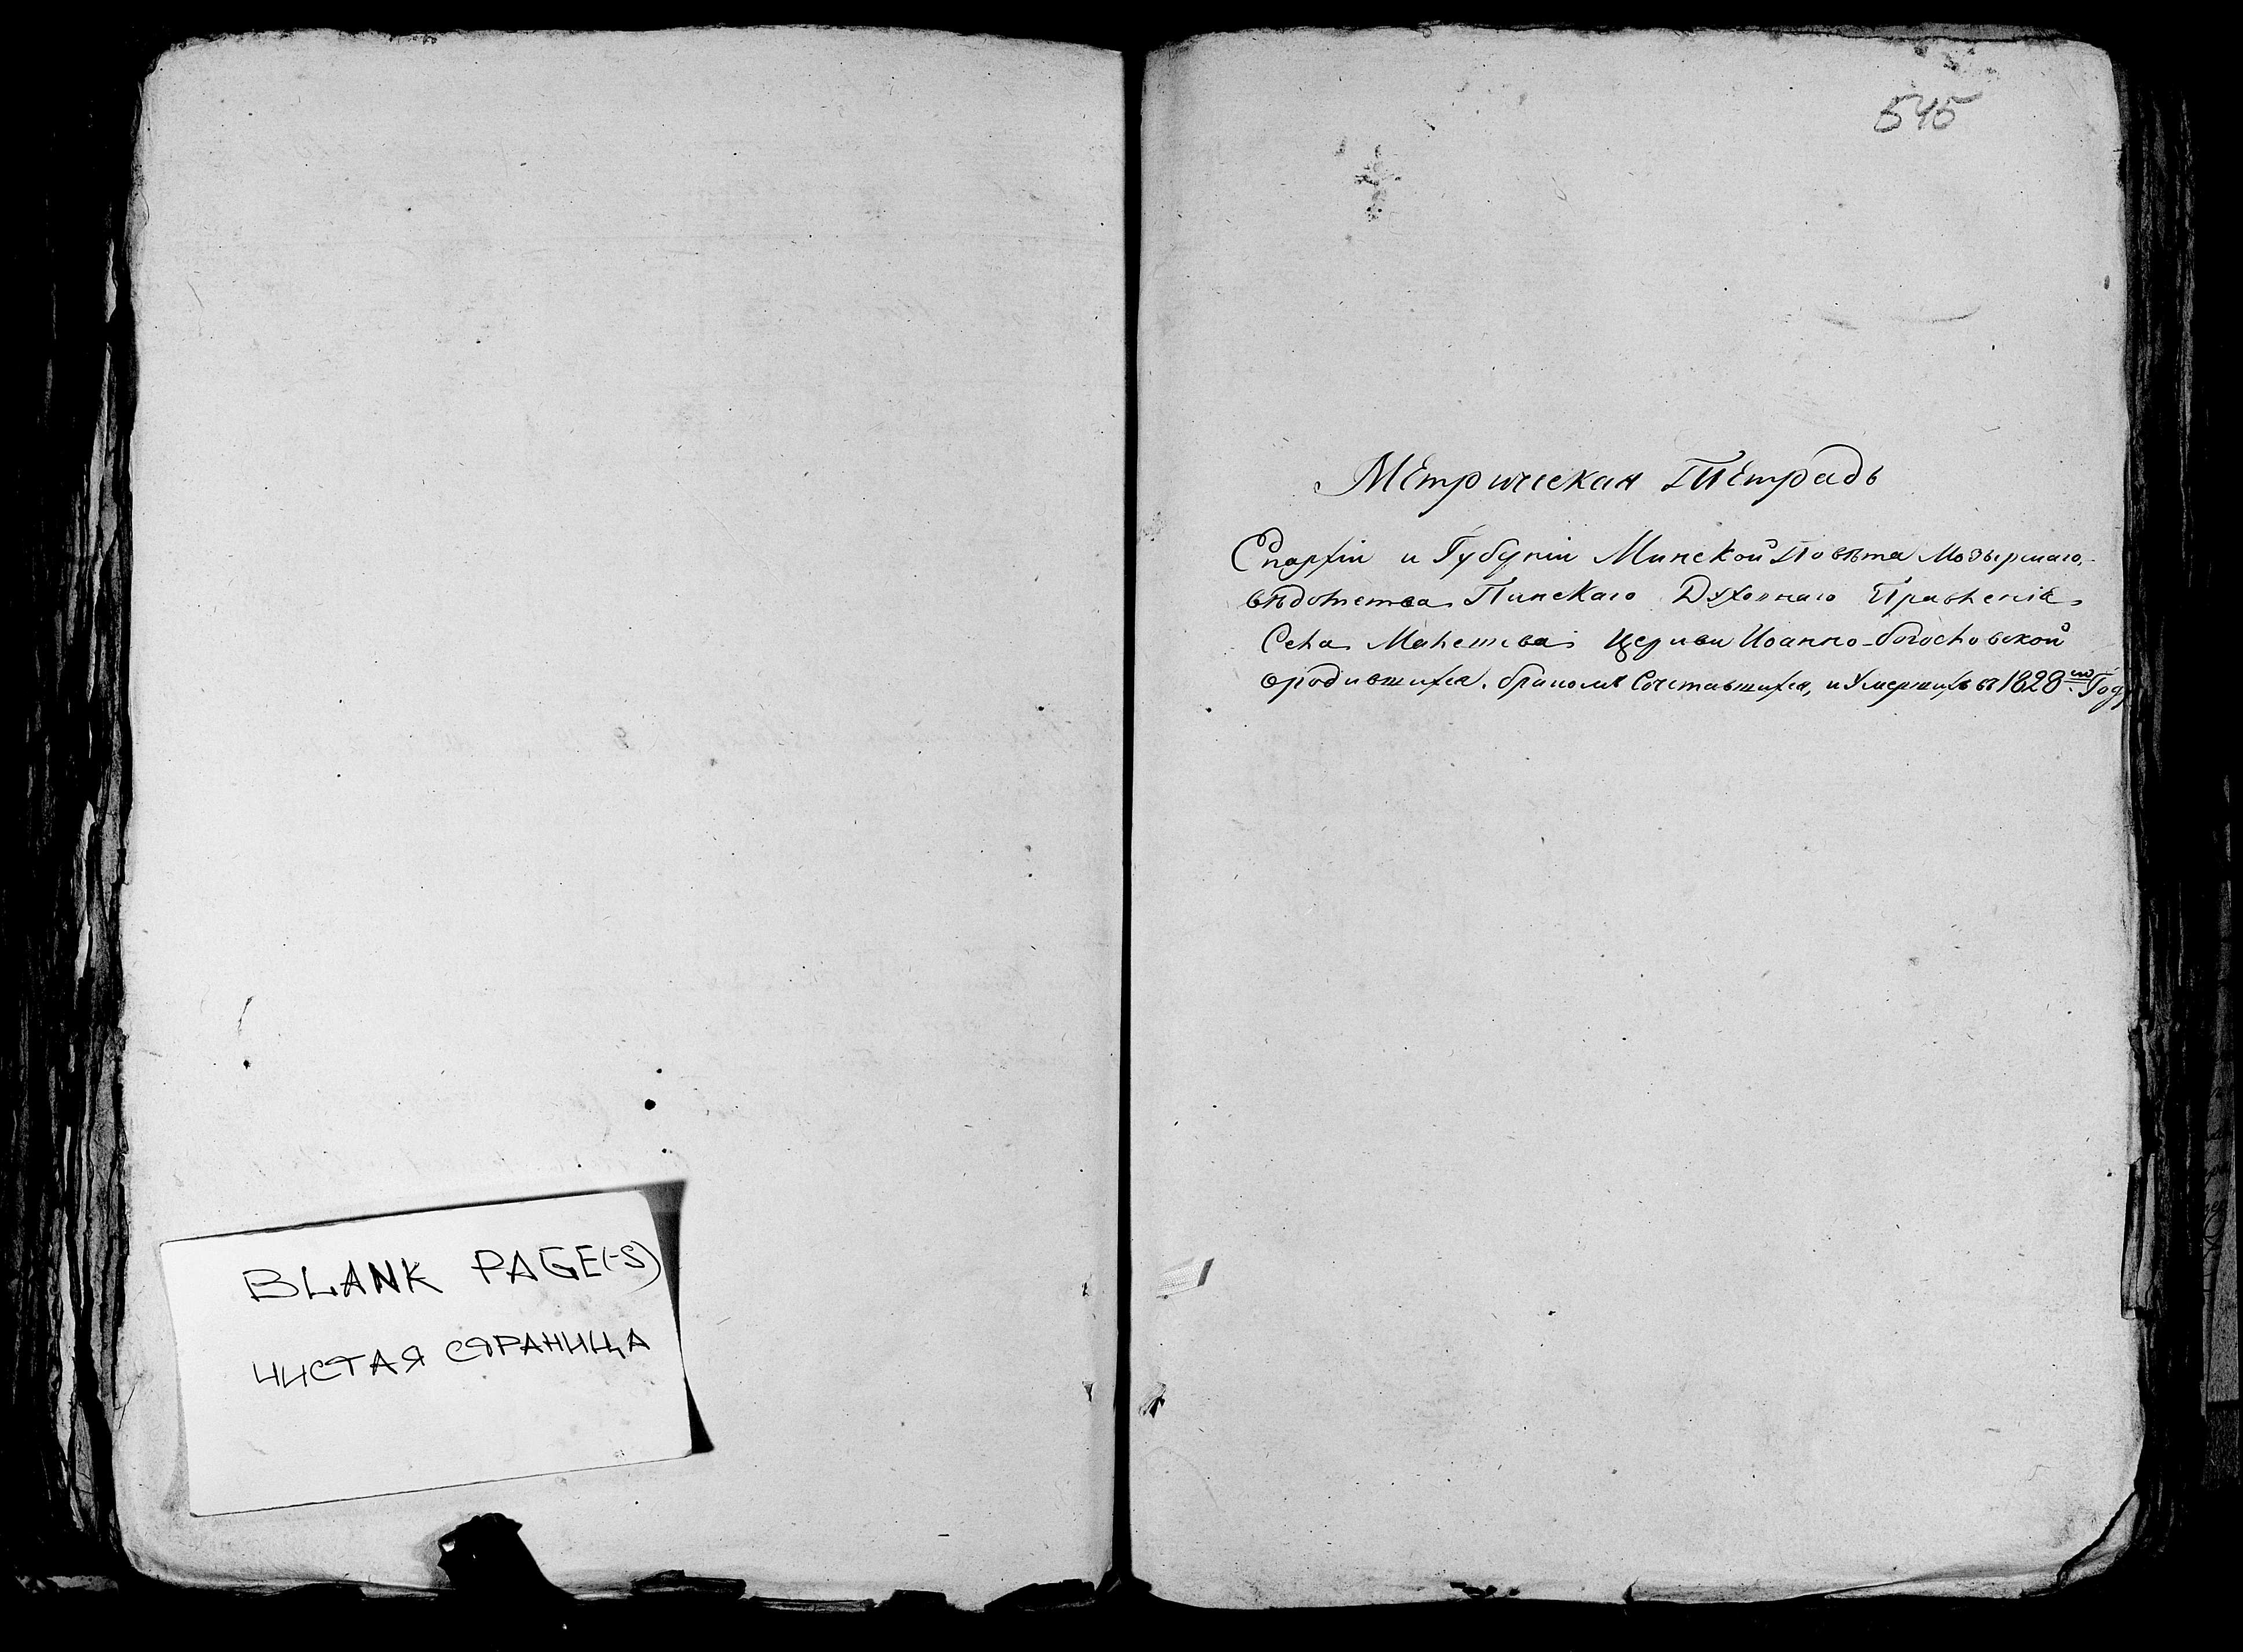 BLANK PAGE(-S)
ЧИСТАЯ СТРАНИЦА
545
Метрическая Тетрадь
Епархіи и Губерніи Минской Повѣта Мозырскаго,
вѣдомства Пинскаго Духовнаго Правленія
Села Церкви Иоанно-богословской
ородившихся, бракомъ Сочетавшихся, и Умершихъ въ 1828мъ Году